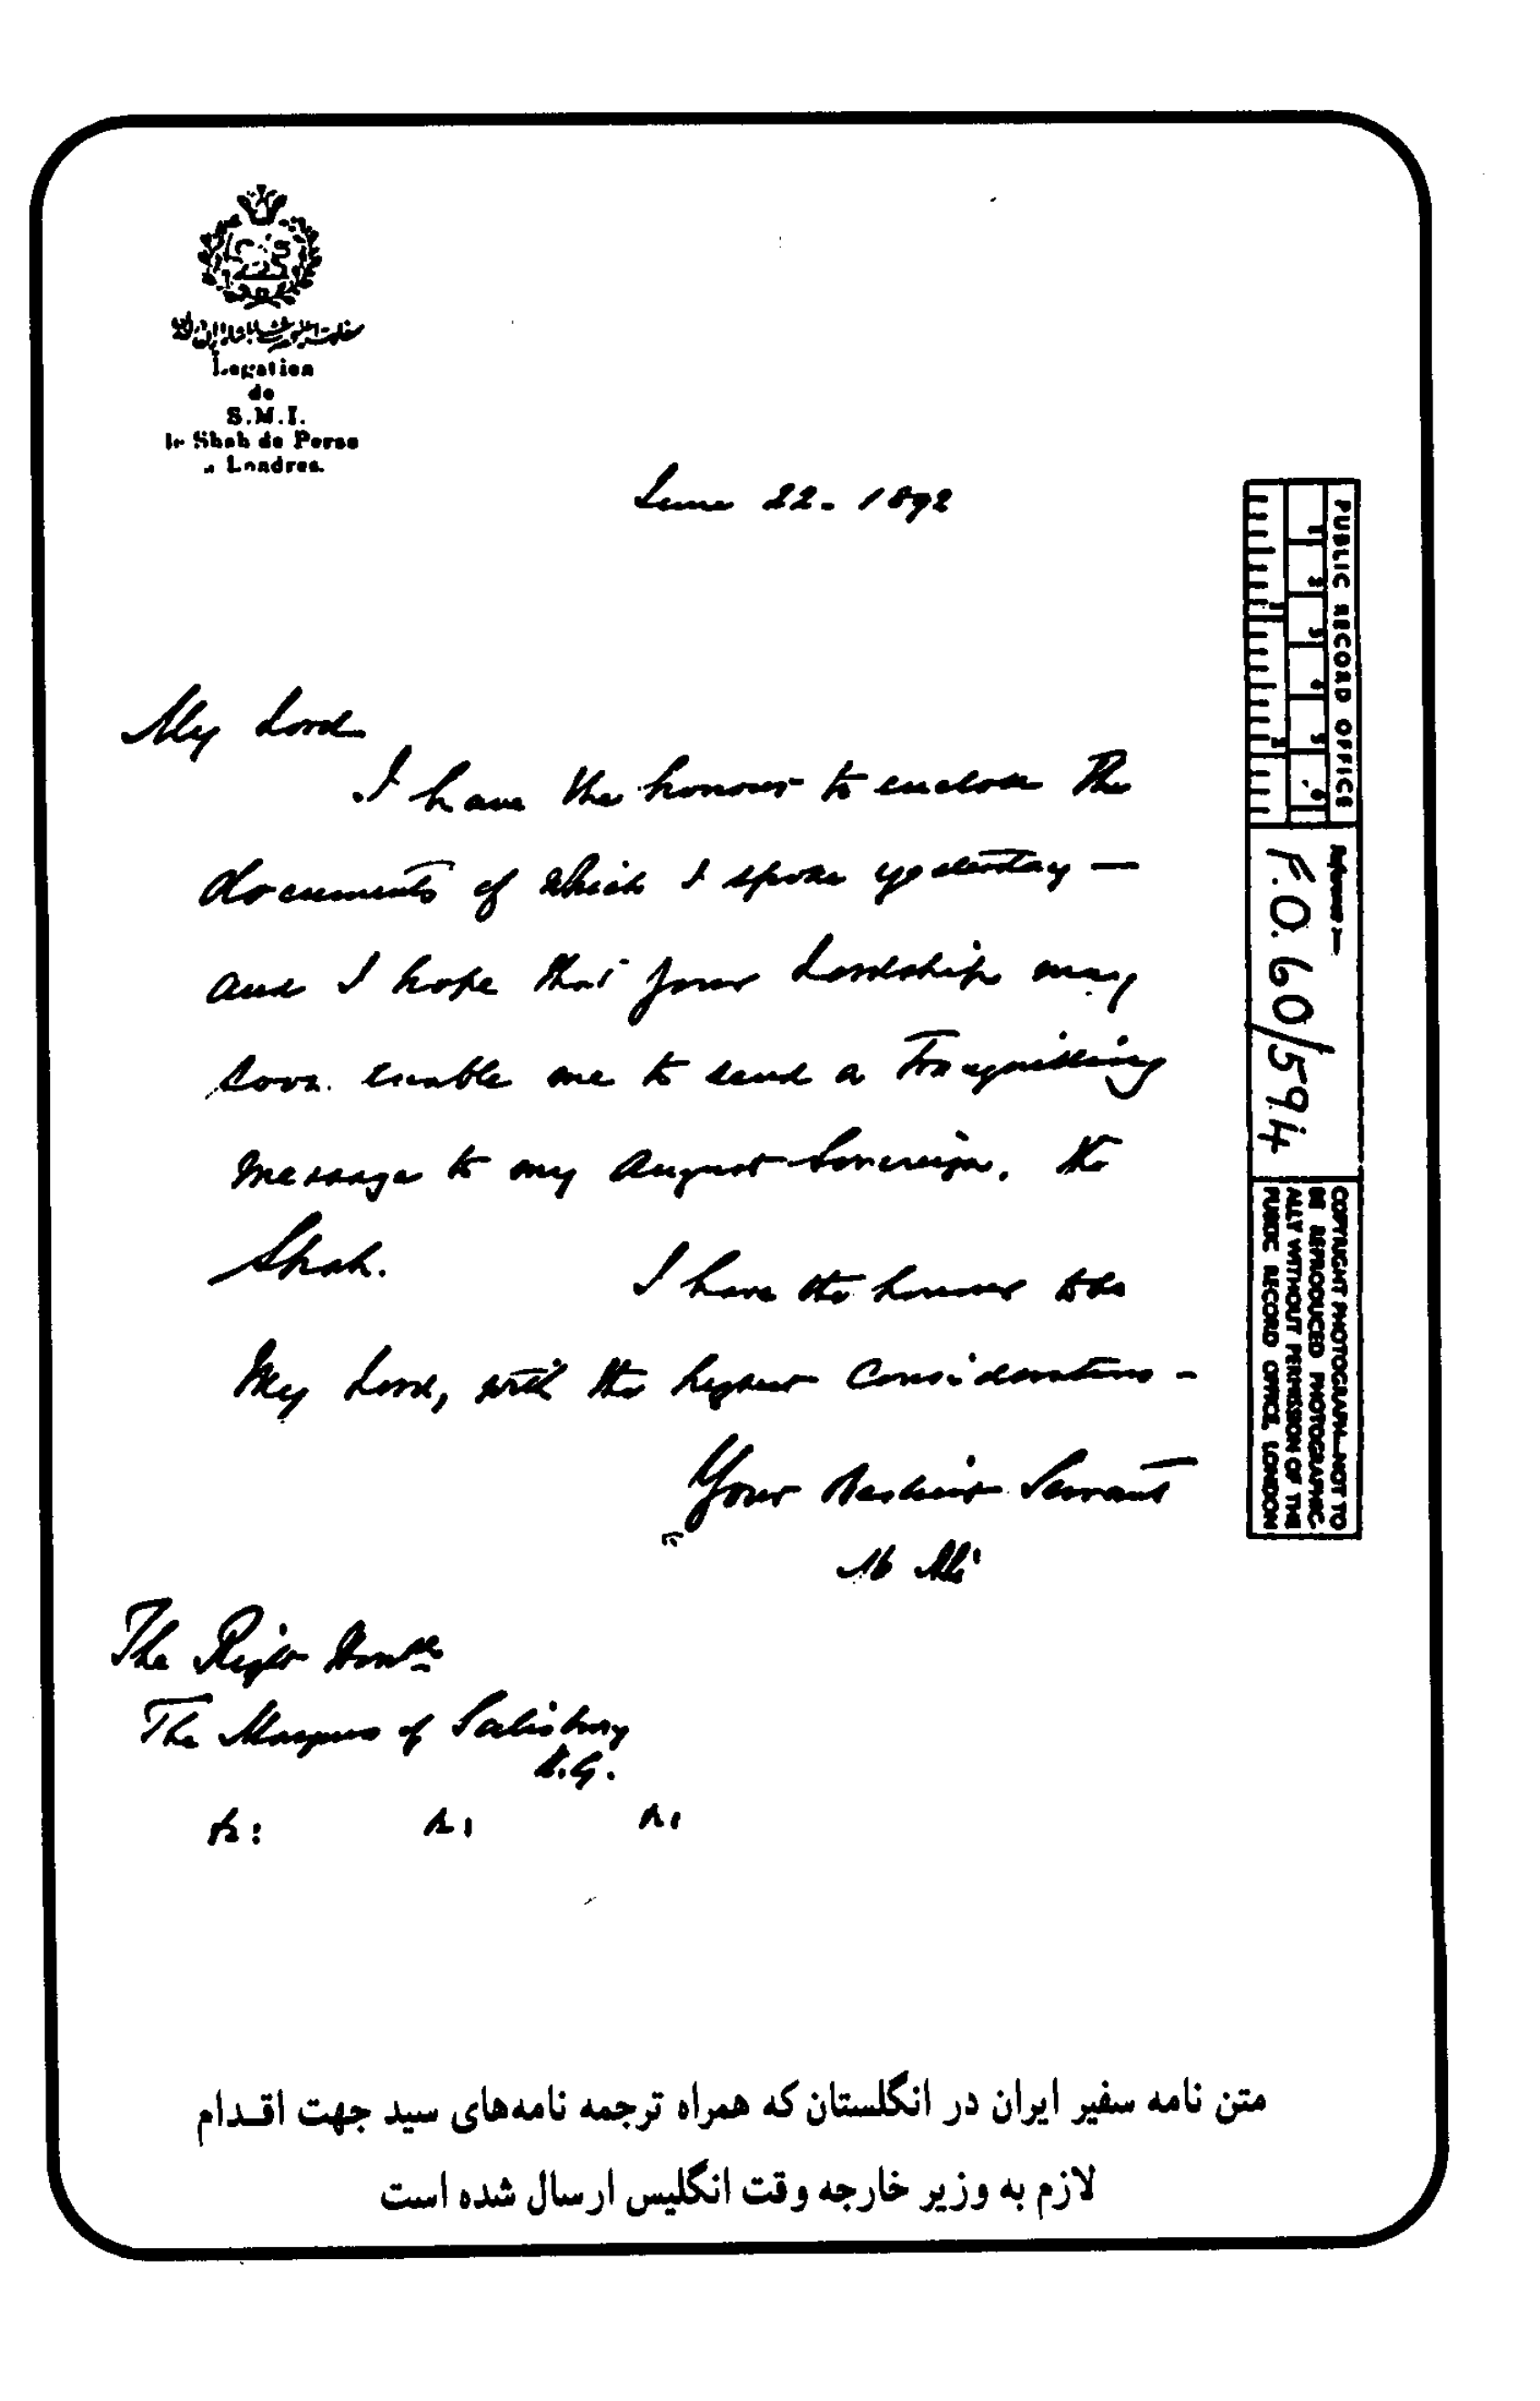 Legation
de
S.M.I.
le Shah de Perse
à Londres.
June 22. 1892
My Lord
I have the honour to enclose the
documents of which I spoke yesterday —
and I hope that your Lordship may
soon enable me to send a Tranquillising
message to my August Sovereign, the
Shah.
I have the honour to be
My Lord, with the highest Consideration -
Your Obedient Servant
M Ali
The Right Honble
The Marquis of Salisbury
K.G.
&: &: &:
PUBLIC RECORD OFFICE
1 2 3 4 5 6
Reference :-
F.O. 60/594
COPYRIGHT PHOTOGRAPH—NOT TO
BE REPRODUCED PHOTOGRAPHIC-
ALLY WITHOUT PERMISSION OF THE
PUBLIC RECORD OFFICE, LONDON
متن نامه سفیر ایران در انگلستان که همراه ترجمه نامه‌های سید جهت اقـدام
لازم به وزیر خارجه وقت انگلیس ارسال شده است